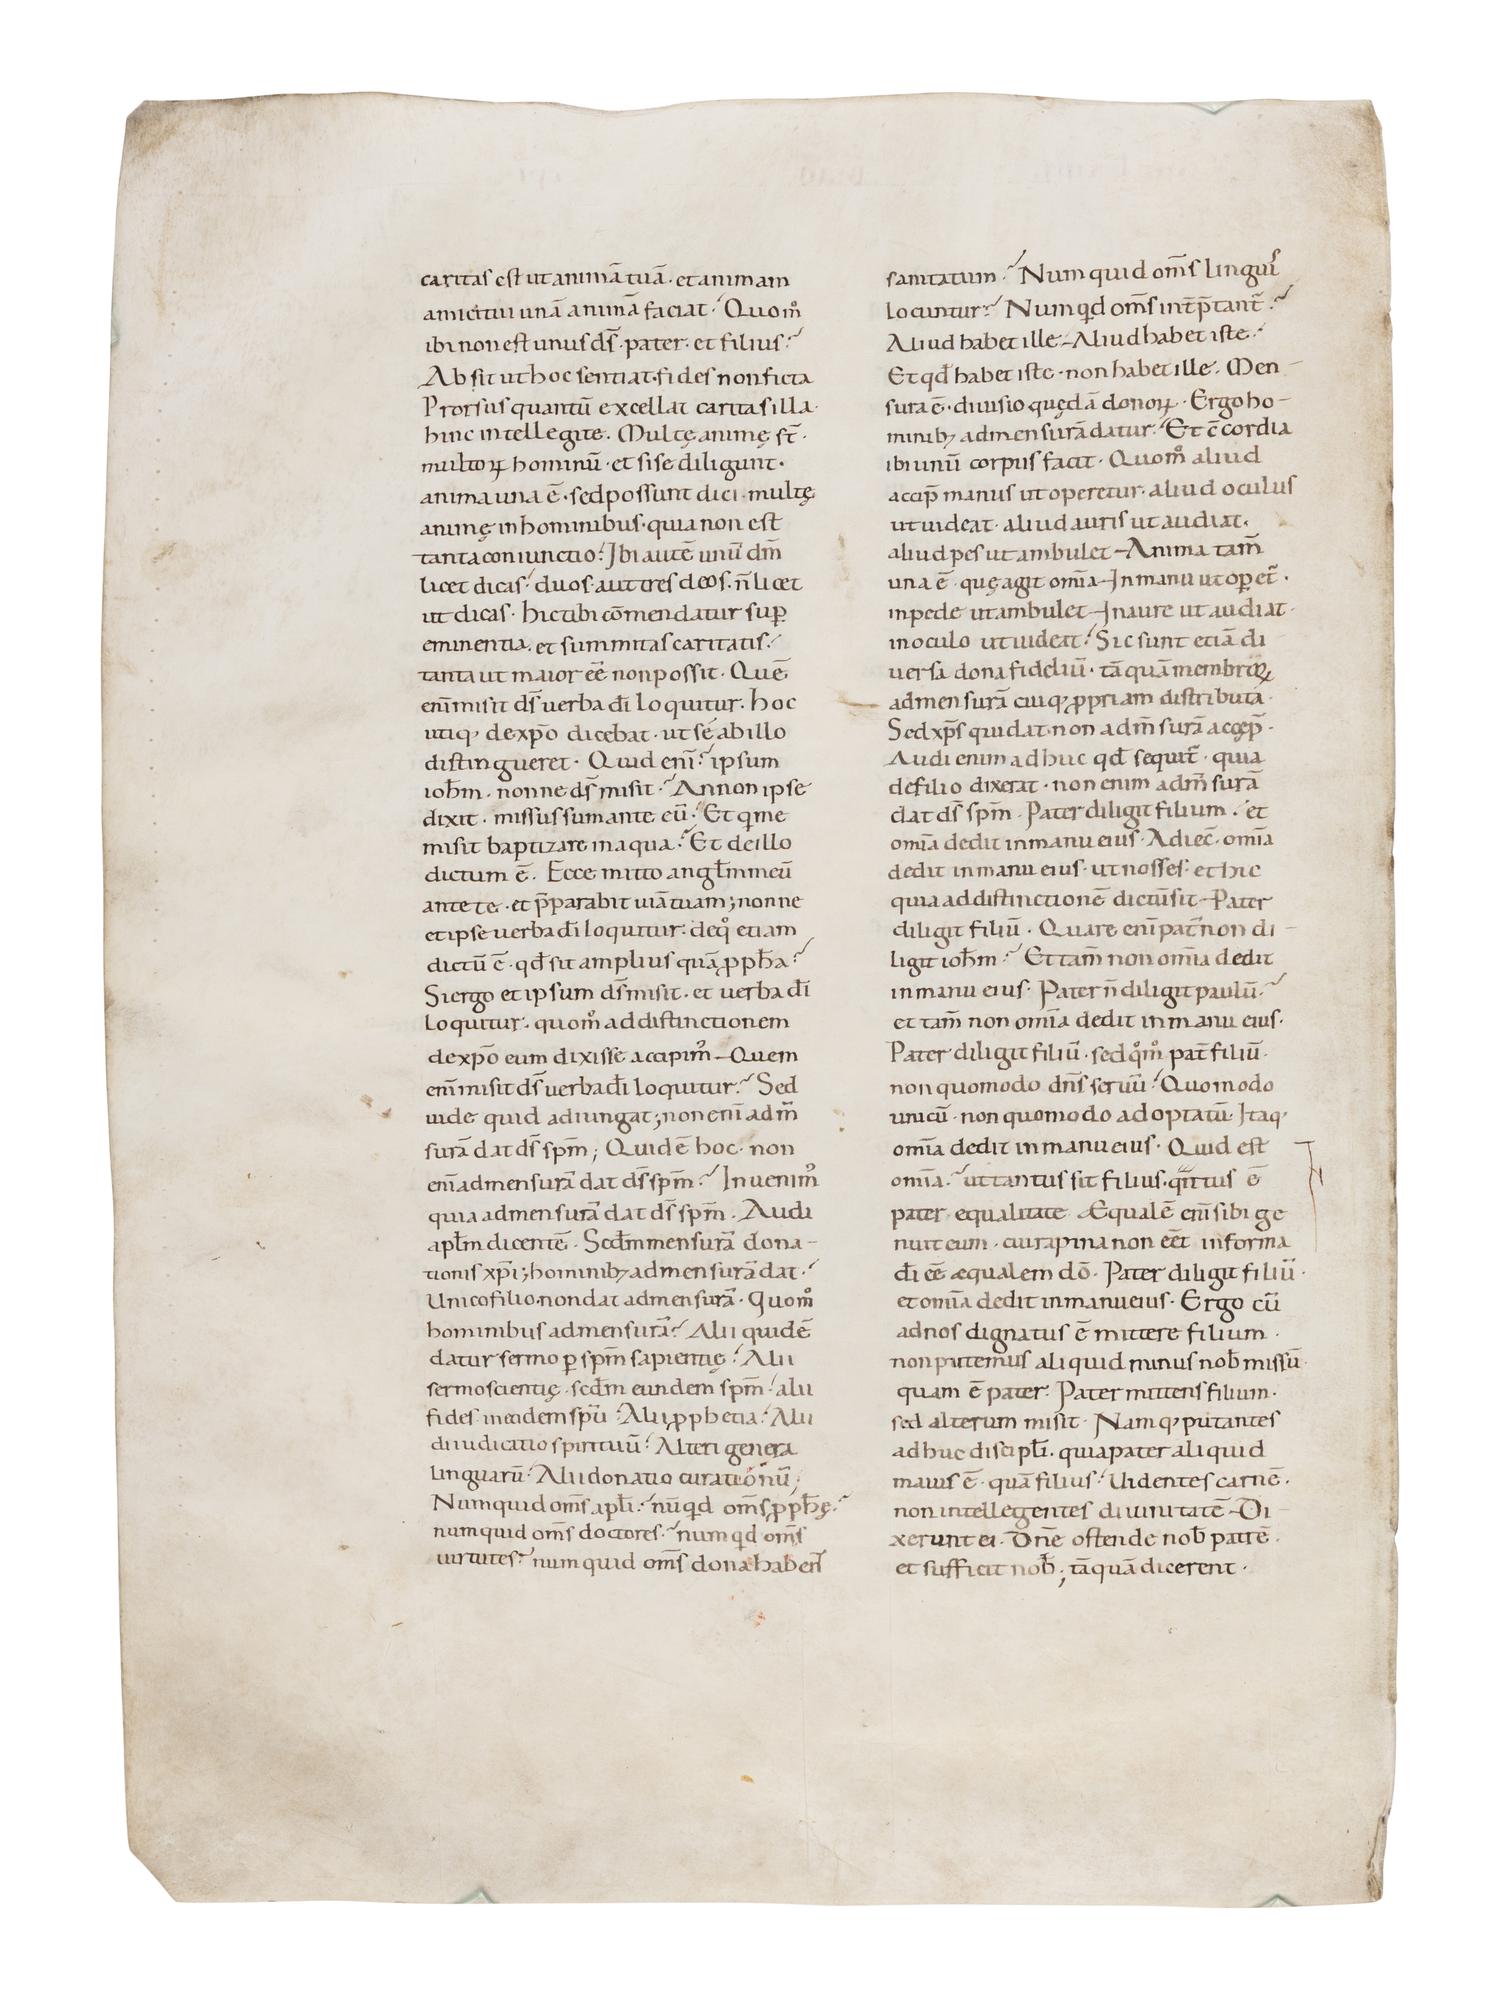 caritas est ut animā tuā· et animam
amici tui unā animā faciat· Quom̊
ibi non est unus d̄s· pater· et filius?
Absit ut hoc sentiat· fides non ficta
Prorsus quantū excellat caritas illa·
hinc intellegite. Multę animę st̄·
multoꝝ hominū· et si se diligunt·
anima una ē· sed possunt dici· multę
animę in hominibus· quia non est
tanta coniunctio? Ibi autē unū dm̄
licet dicas· duos aut tres deos· n̄ licet
ut dicas· hic tibi cōmendatur sup̲
eminentia· et summitas caritatis·
tanta ut maior eē non possit· Quē
eni̅ misit d̄s verba dī loquitur· hoc
utiq; de xp̄o dicebat· ut sē ab illo
distingueret· Quid eni̅? ipsum
ioh̄m· nonne d̄s misit? An non ipse
dixit· missus sum ante eū? Et q̲ me
misit baptizare in aqua? Et de illo
dictum ē· Ecce mitto angłm meū
ante te· et p̄parabit uiā tuam; nonne
et ipse uerba dī loquitur· de q̊ etiam
dictū ē· qđ sit amplius quā ꝓph̄a?
Si ergo et ipsum d̄s misit· et uerba dī
loquitur· quom̊ ad distinctionem
de xp̄o eum dixisse accipim᾿ – Quem
eni̅ misit d̄s uerba dī loquitur? Sed
uide quid adiungat; non eni̅ ad m̄
surā dat d̄s sp̄m; Quid ē hoc· non
eni̅ ad mensurā dat d̄s sp̄m? Inuenim᾿
quia ad mensurā dat d̄s sp̄m· Audi
apłm dicentē· Scd̄m mensurā dona-
tionis xp̄i; hominib; ad mensurā dat·
Unico filio non dat ad mensurā· Quom̊
hominibus ad mensurā? Alii quidē
datur sermo ꝑ sp̄m sapientię? Alii
sermo scientię· scd̄m eundem sp̄m· alii
fides in eodem sp̄u· Alii ꝓphetia· Alii
diiudicatio spirituū? Alteri genera
linguarū· Alii donatio curationū;
Numquid om̄s apłi? nūq̲d om̄s ꝓph̄ę?
numquid om̄s doctores· numq̲d om̄s
uirtutes? numquid om̄s dona haben̄t
sanitatum? Numquid om̄s lingui᾿s
locuntur? Numq̲d om̄s int̄p̄tant̄?
Aliud habet ille – Aliud habet iste·
Et qđ habet iste· non habet ille· Men-
sura ē· diuisio quędā donoꝝ· Ergo ho-
minib; ad mensurā datur· Et c̄cordia
ibi unū corpus facit· Quom̊ aliud
accip̄ manus ut operetur· aliud oculus
ut uideat· aliud auris ut audiat·
aliud pes ut ambulet – Anima tam̄
una ē· quę agit om̄ia – In manu ut oꝑet̄·
in pede ut ambulet – In aure ut audiat·
in oculo ut uideat? Sic sunt etiā di
uersa dona fideliū· tā quā membris
ad mensurā cuiq; ꝓpriam distributa·
Sed xp̄s qui dat· non ad m̄surā accep̄·
Audi enim adhuc qđ sequit̄· quia
de filio dixerat· non enim ad m̄surā
dat d̄s sp̄m· Pater diligit filium· et
om̄ia dedit in manu eius· Adiec̄· om̄ia
dedit in manu eius· ut nosses· et hic
quia ad distinctionē dictū sit – Pater
diligit filiū· Quare eni̅ pat̄ non di-
ligit ioh̄m? Et tam̄ non om̄ia dedit
in manu eius· Pater n̄ diligit paulū?
et tam̄ non om̄ia dedit in manu eius·
Pater diligit filiū· sed q̊m̊ pat̄ filiū·
non quomodo dn̄s seruū? Quomodo
unicū· non quomodo adoptatū· Itaq;
om̄ia dedit in manu eius· Quid est
om̄ia? ut tantus sit filius· q̄ntus ē
pater· equalitate· Æqualē eni̅ sibi ge
nuit eum· cui rapina non eēt in forma
dī eē æqualem dō· Pater diligit filiū·
et om̄ia dedit in manu eius· Ergo cū
ad nos dignatus ē mittere filium·
non putemus aliquid minus nob̄ missū·
quam ē pater· Pater mittens filium·
sed alterum misit· Namq; putantes
adhuc discipłi· quia pater aliquid
maius ē· quā filius? Uidentes carnē·
non intellegentes diuinitatē – Di-
xerunt ei· Dn̄e ostende nob̄ patrē·
et sufficit nob̄; tā quā dicerent·